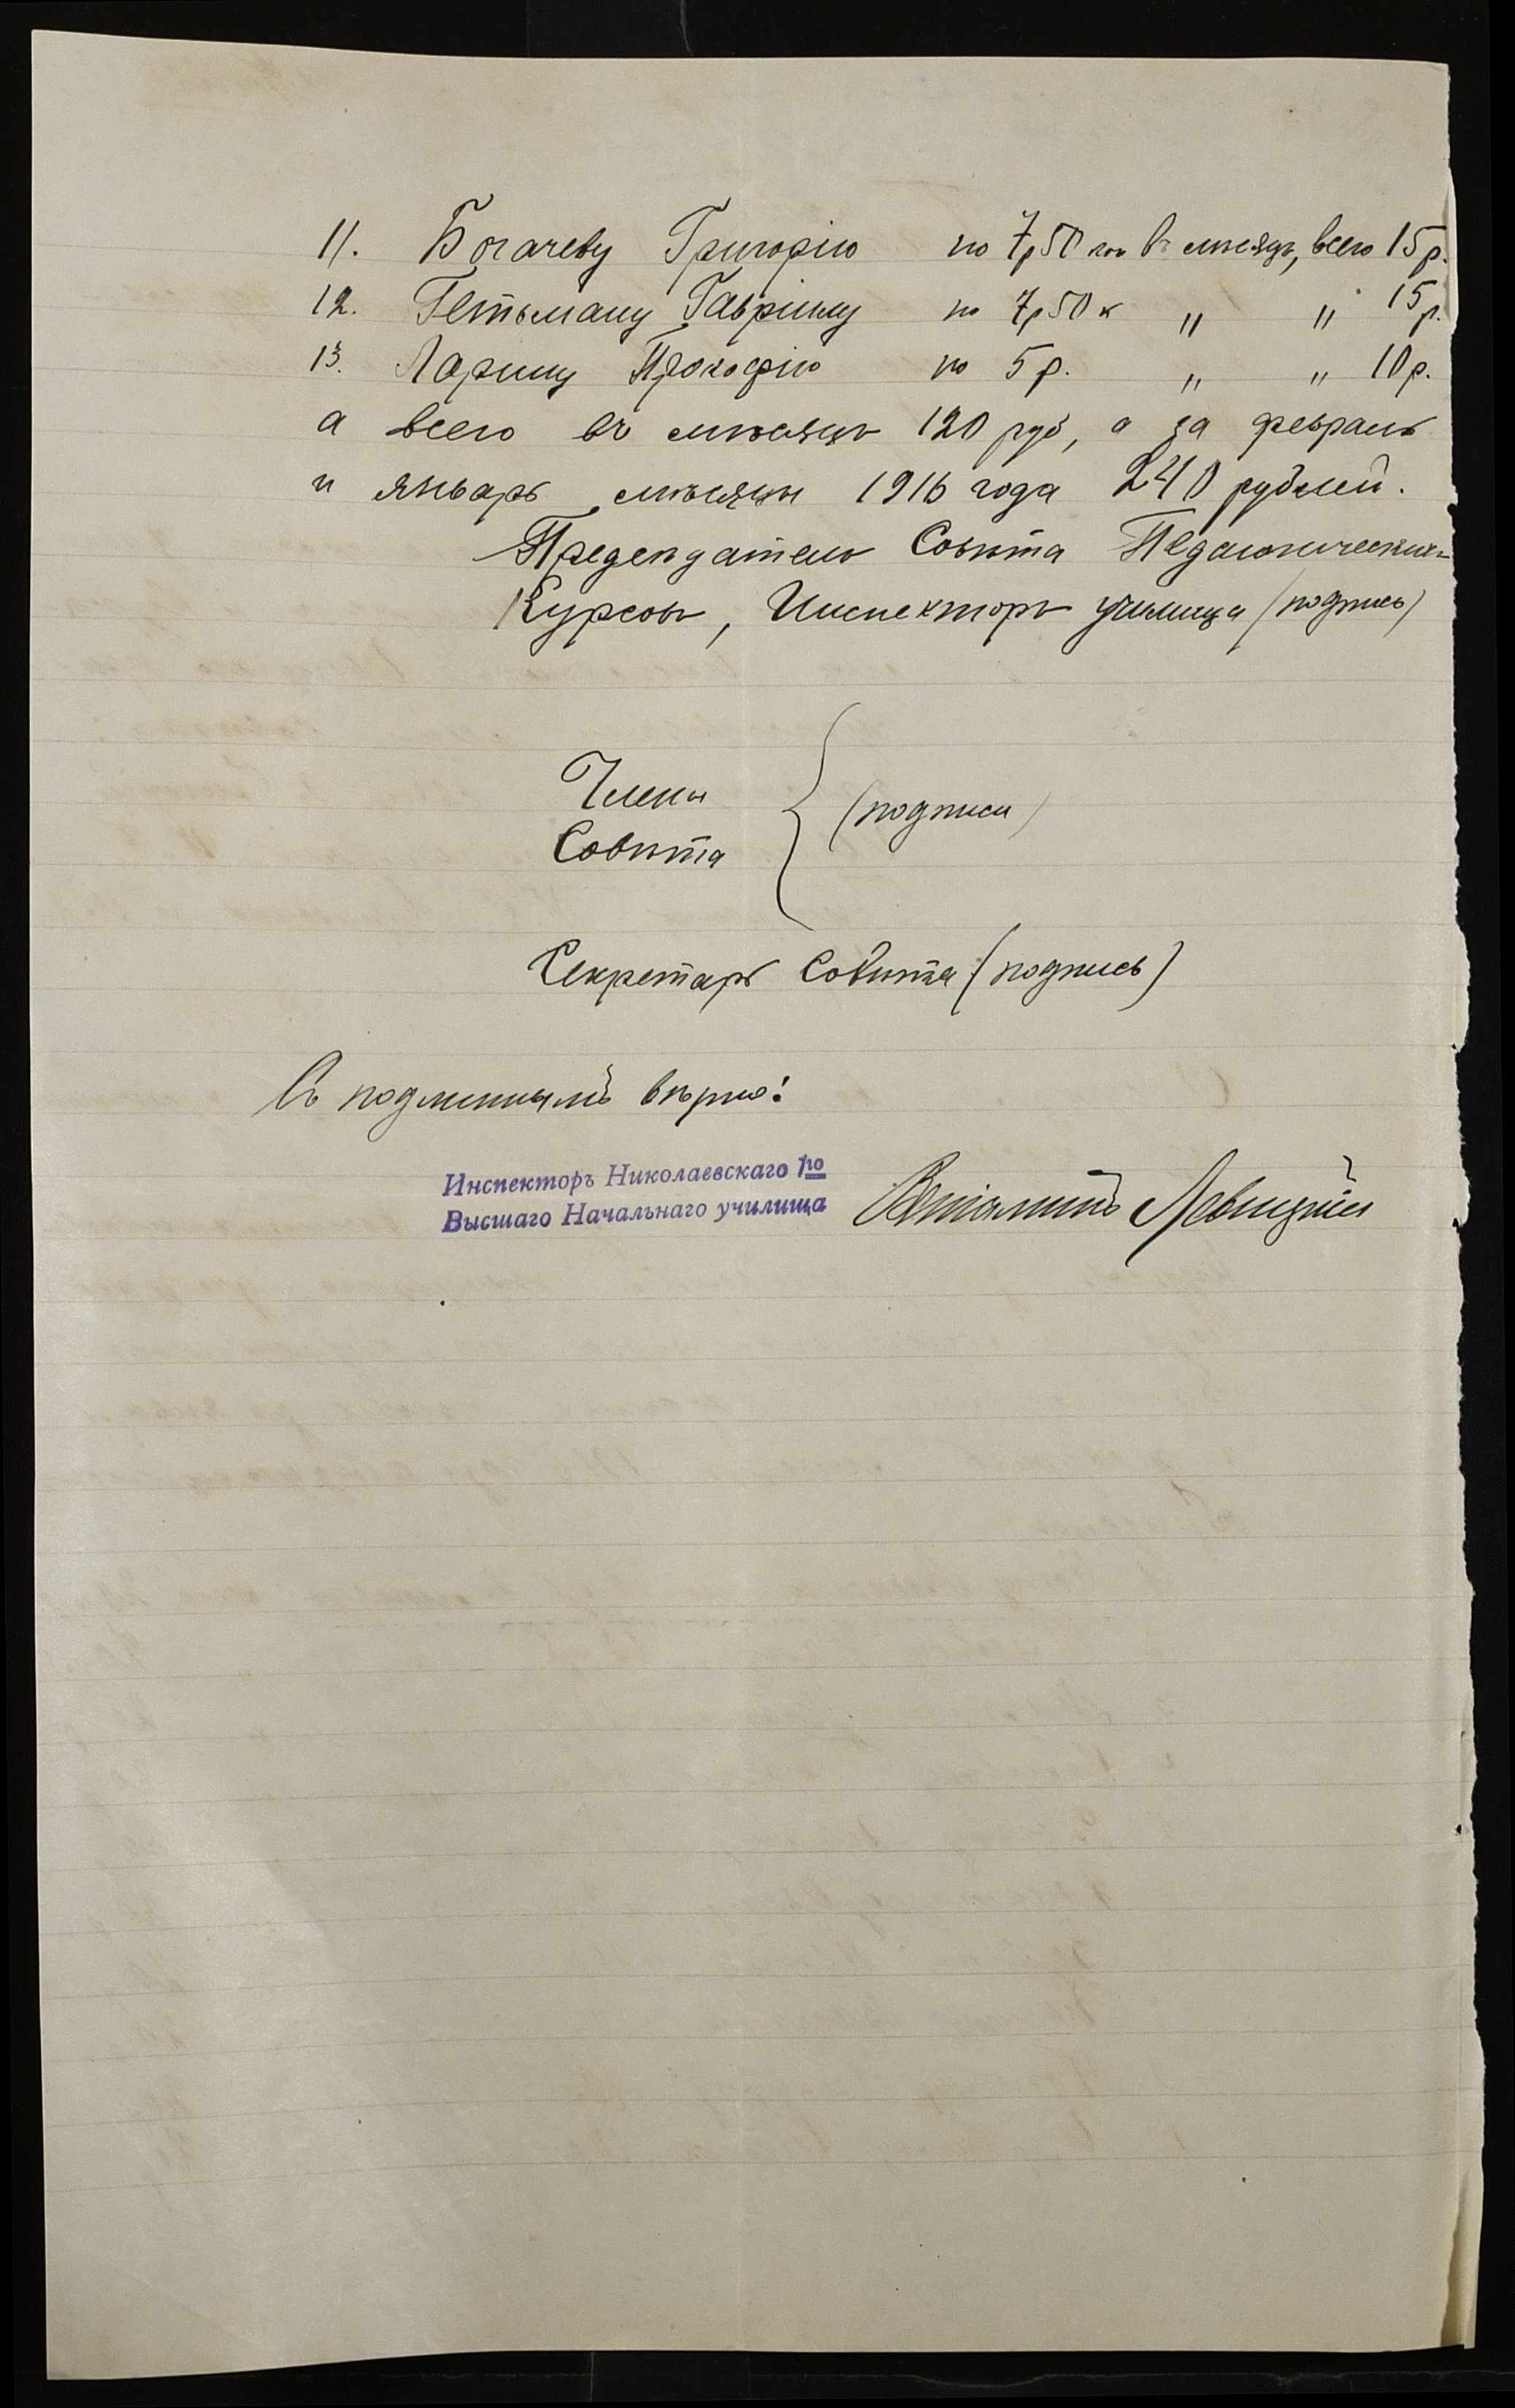 11. Богачеву Григорію по 7р50 коп въ мѣсяцъ, всего 15р.
12. Гетьману Гавріилу по 7р50к " " 15р.
13. Ларину Прокофію по 5р. " " 10р.
а всего въ мѣсяцъ 120 руб, а за февраль
и январь мѣсяцы 1916 года 240 рублей.
Предсѣдатель Совѣта Педагогическихъ
Курсовъ, Инспекторъ училища (подпись)
Члены
Совѣта
(подписи)
Секретарь Совѣта (подпись)
Съ подлиннымъ вѣрно:
Инспекторъ Николаевскаго 1го
Высшаго Начальнаго училища
Левицкій